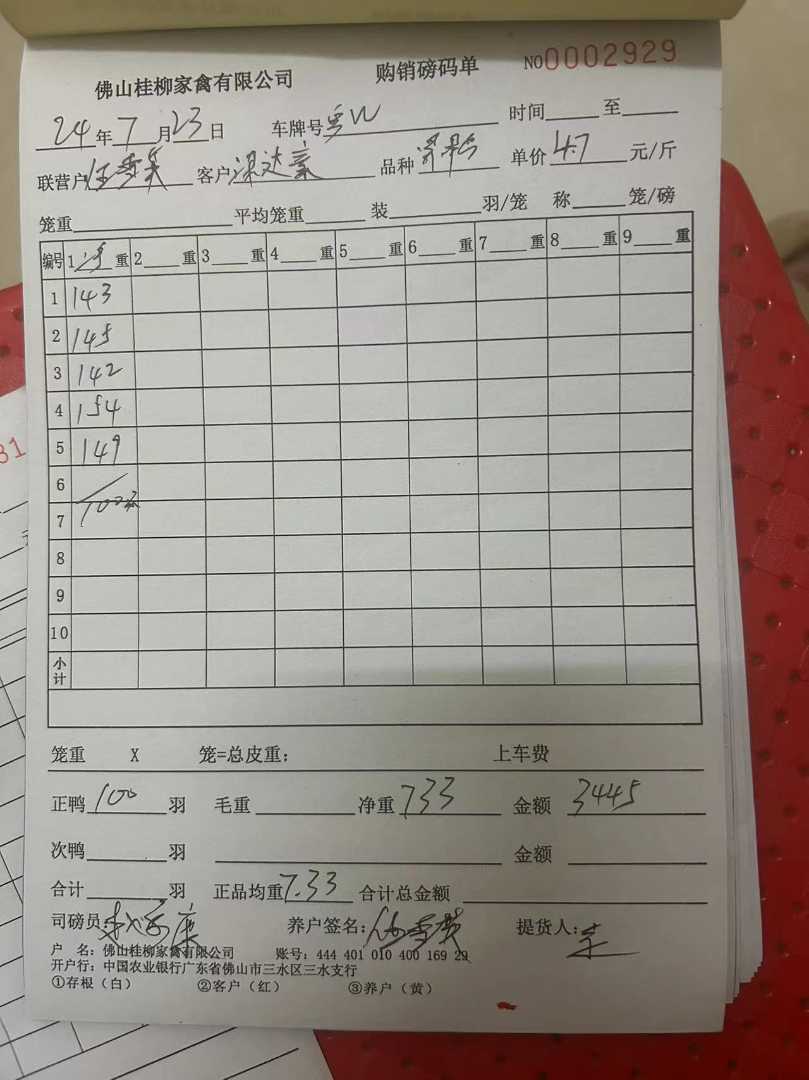 佛山桂柳家禽有限公司 购销磅码单 NO0002929
24年7月23日 车牌号 时间 至
联营户 客户梁达豪 品种 单价4.7元/斤
笼重 平均笼重 装 羽/笼 称 笼/磅
编号 1 净 重 2 重 3 重 4 重 5 重 6 重 7 重 8 重 9 重
1 143
2 145
3 142
4 154
5 149
6
7 100
8
9
10
小计
笼重 X 笼=总皮重: 上车费
正鸭100羽 毛重 净重733 金额3445
次鸭 羽 金额
合计 羽 正品均重7.33 合计总金额
司磅员: 养户签名: 提货人:
户 名: 佛山桂柳家禽有限公司 账号: 444 401 010 400 169 29
开户行: 中国农业银行广东省佛山市三水区三水支行
①存根(白) ②客户(红) ③养户(黄)
31